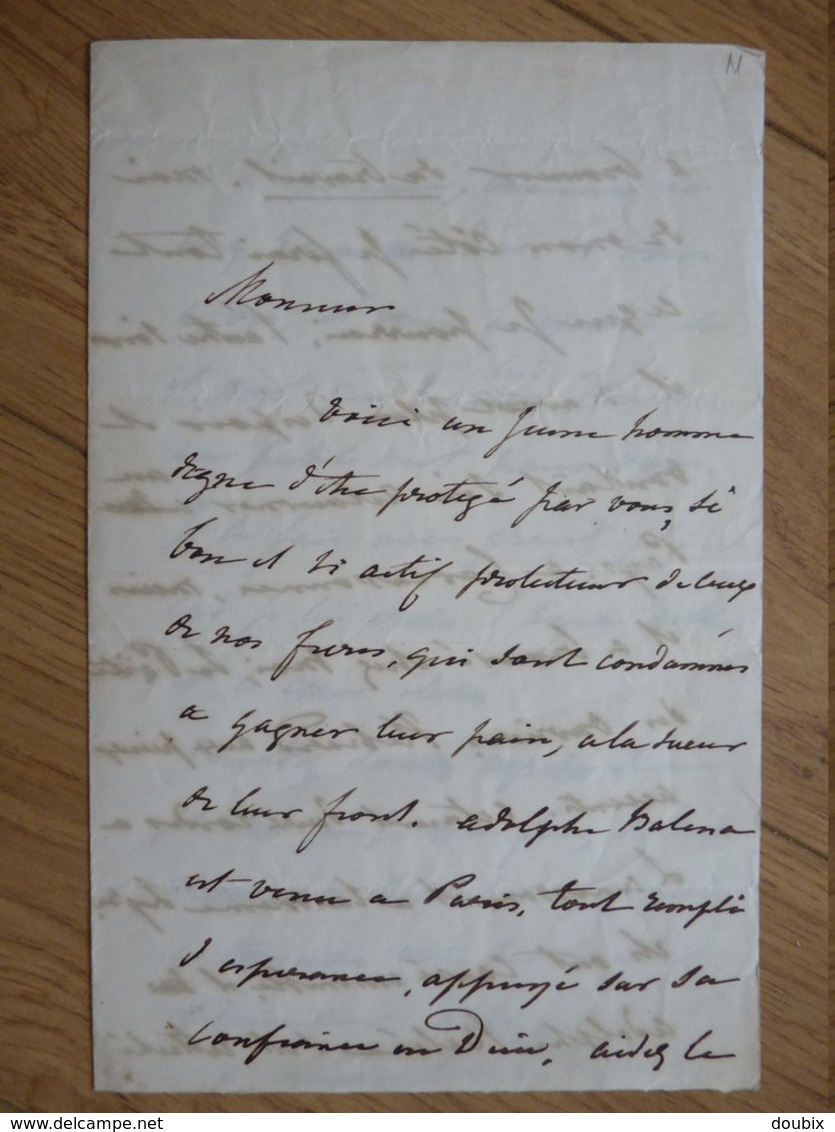 N
Monsieur
Voici un jeune homme
digne d'être protegé par vous, si
bon et si actif protecteur de ceux
de nos freres, qui sont condamnés
a gagner leur pain, a la sueur
de leur front. adolphe
est venu a Paris, tout rempli
d esperance, appuyé sur sa
confiance en Dieu, aidez le
delcampe.net
doubix